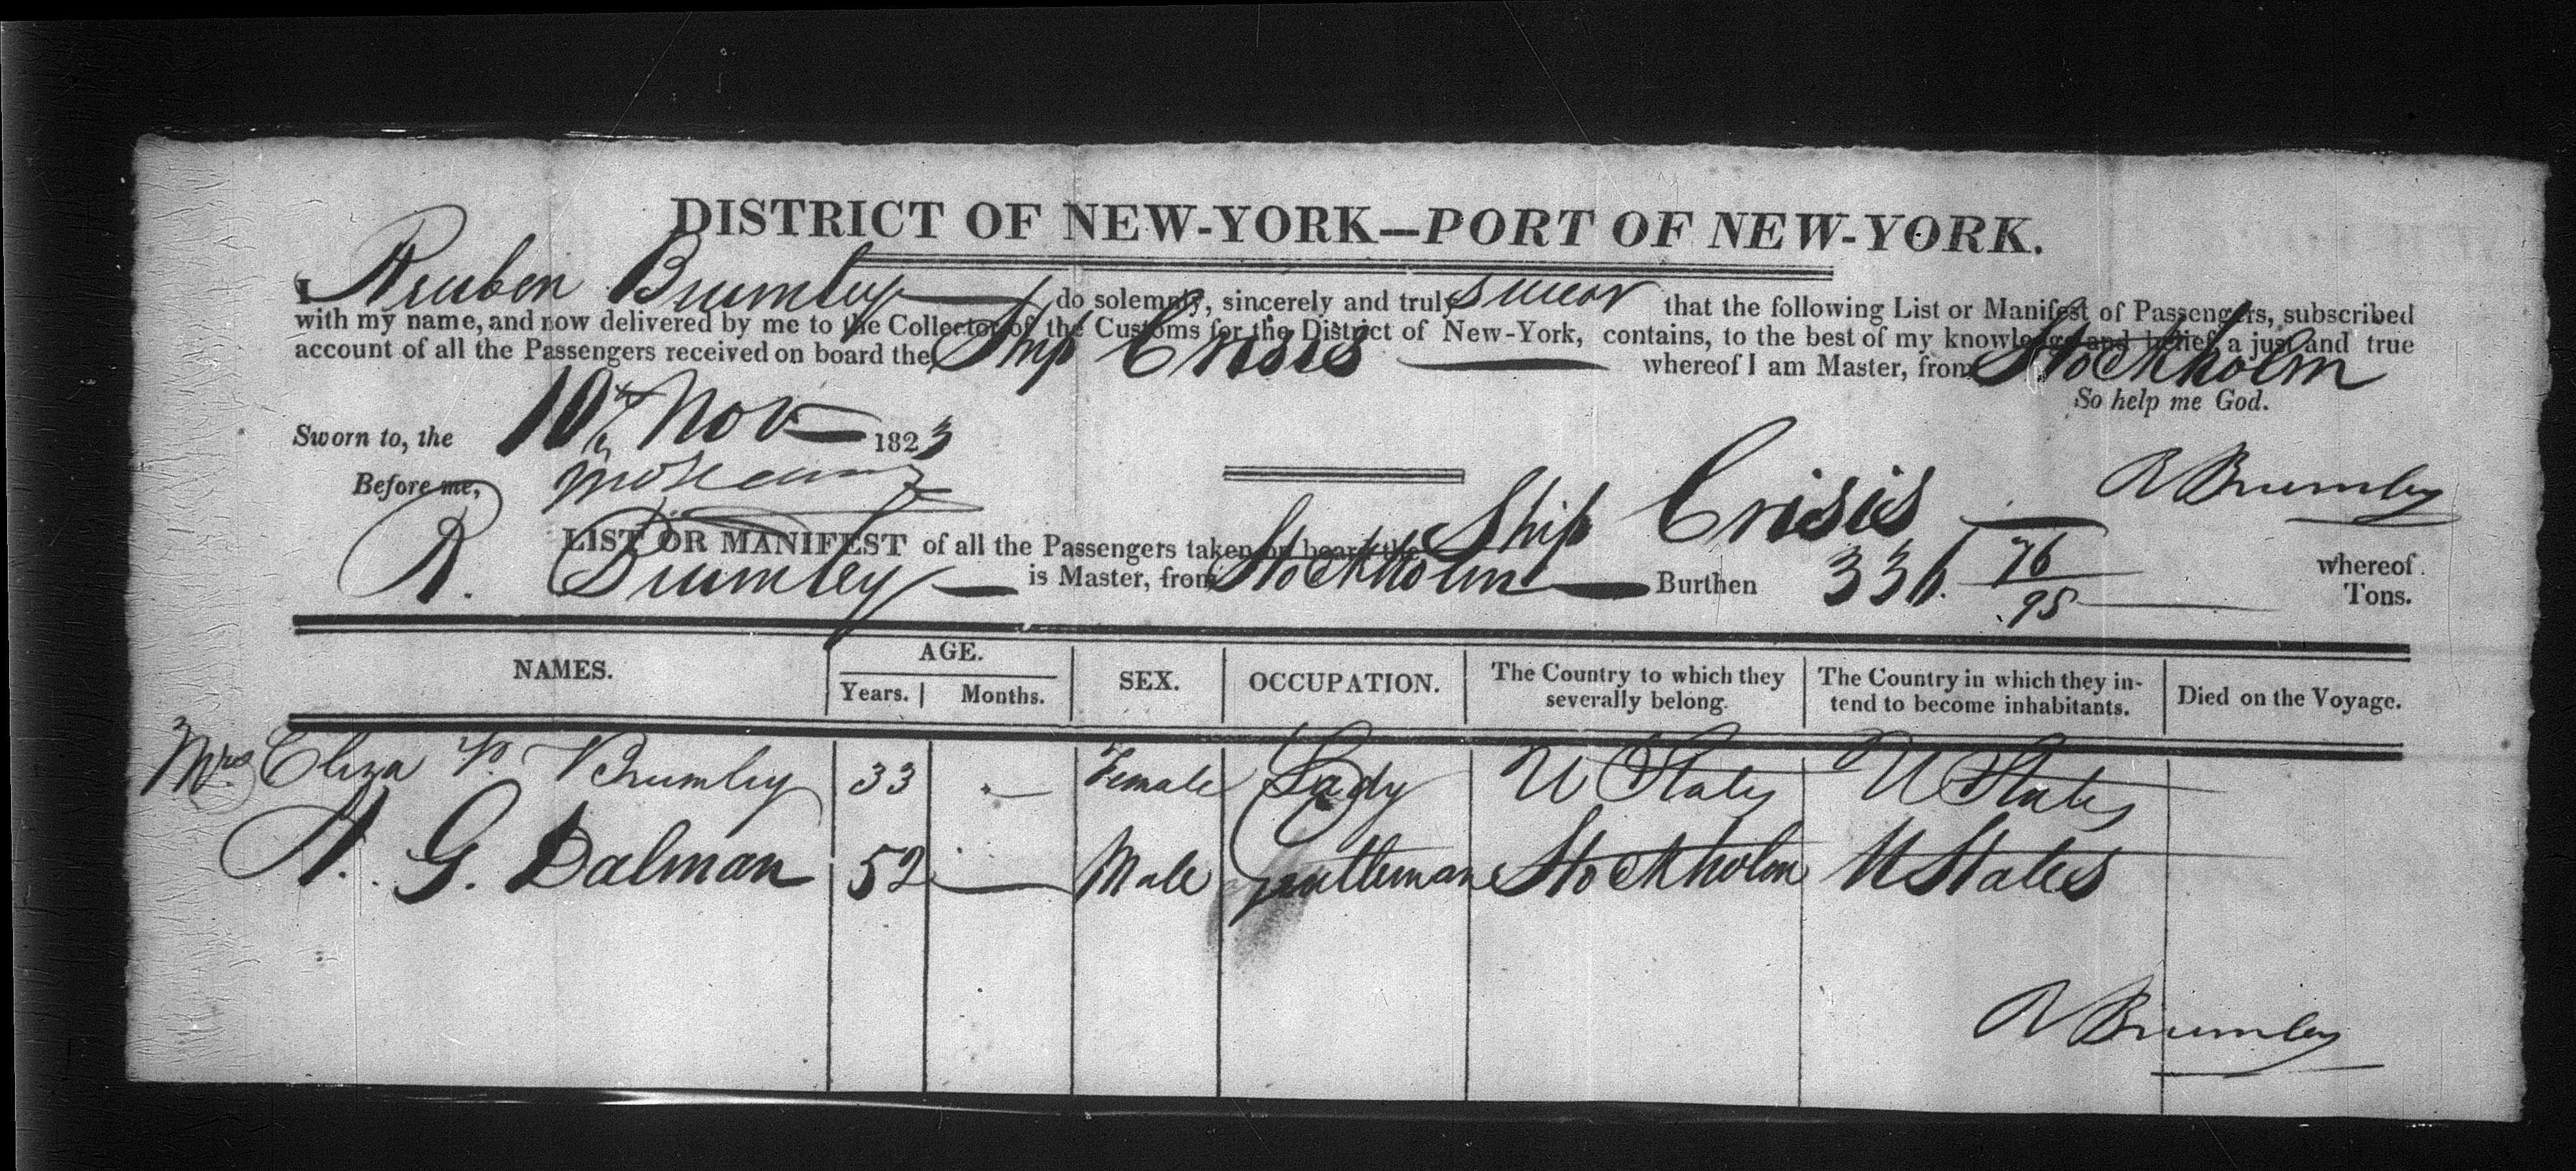 DISTRICT OF NEW-YORK—PORT OF NEW-YORK.
I Reuben Brumley — do solemnly, sincerely and truly swear that the following List or Manifest of Passengers, subscribed
with my name, and now delivered by me to the Collector of the Customs for the District of New-York, contains, to the best of my knowledge and belief, a just and true
account of all the Passengers received on board the Ship Crisis — whereof I am Master, from Stockholm
So help me God.
Sworn to, the 10th Nov — 1823
Before me,
R Brumley
LIST OR MANIFEST of all the Passengers taken on board the Ship Crisis — whereof
R. Brumley — is Master, from Stockholm — Burthen 336 76/95 Tons.
NAMES. AGE. Years. Months. SEX. OCCUPATION. The Country to which they severally belong. The Country in which they intend to become inhabitants. Died on the Voyage.
Mrs Eliza P. Brumley 33 — Female Lady U States U States
A. G. Dalman 52 — Male Gentleman Stockholm U States
R Brumley